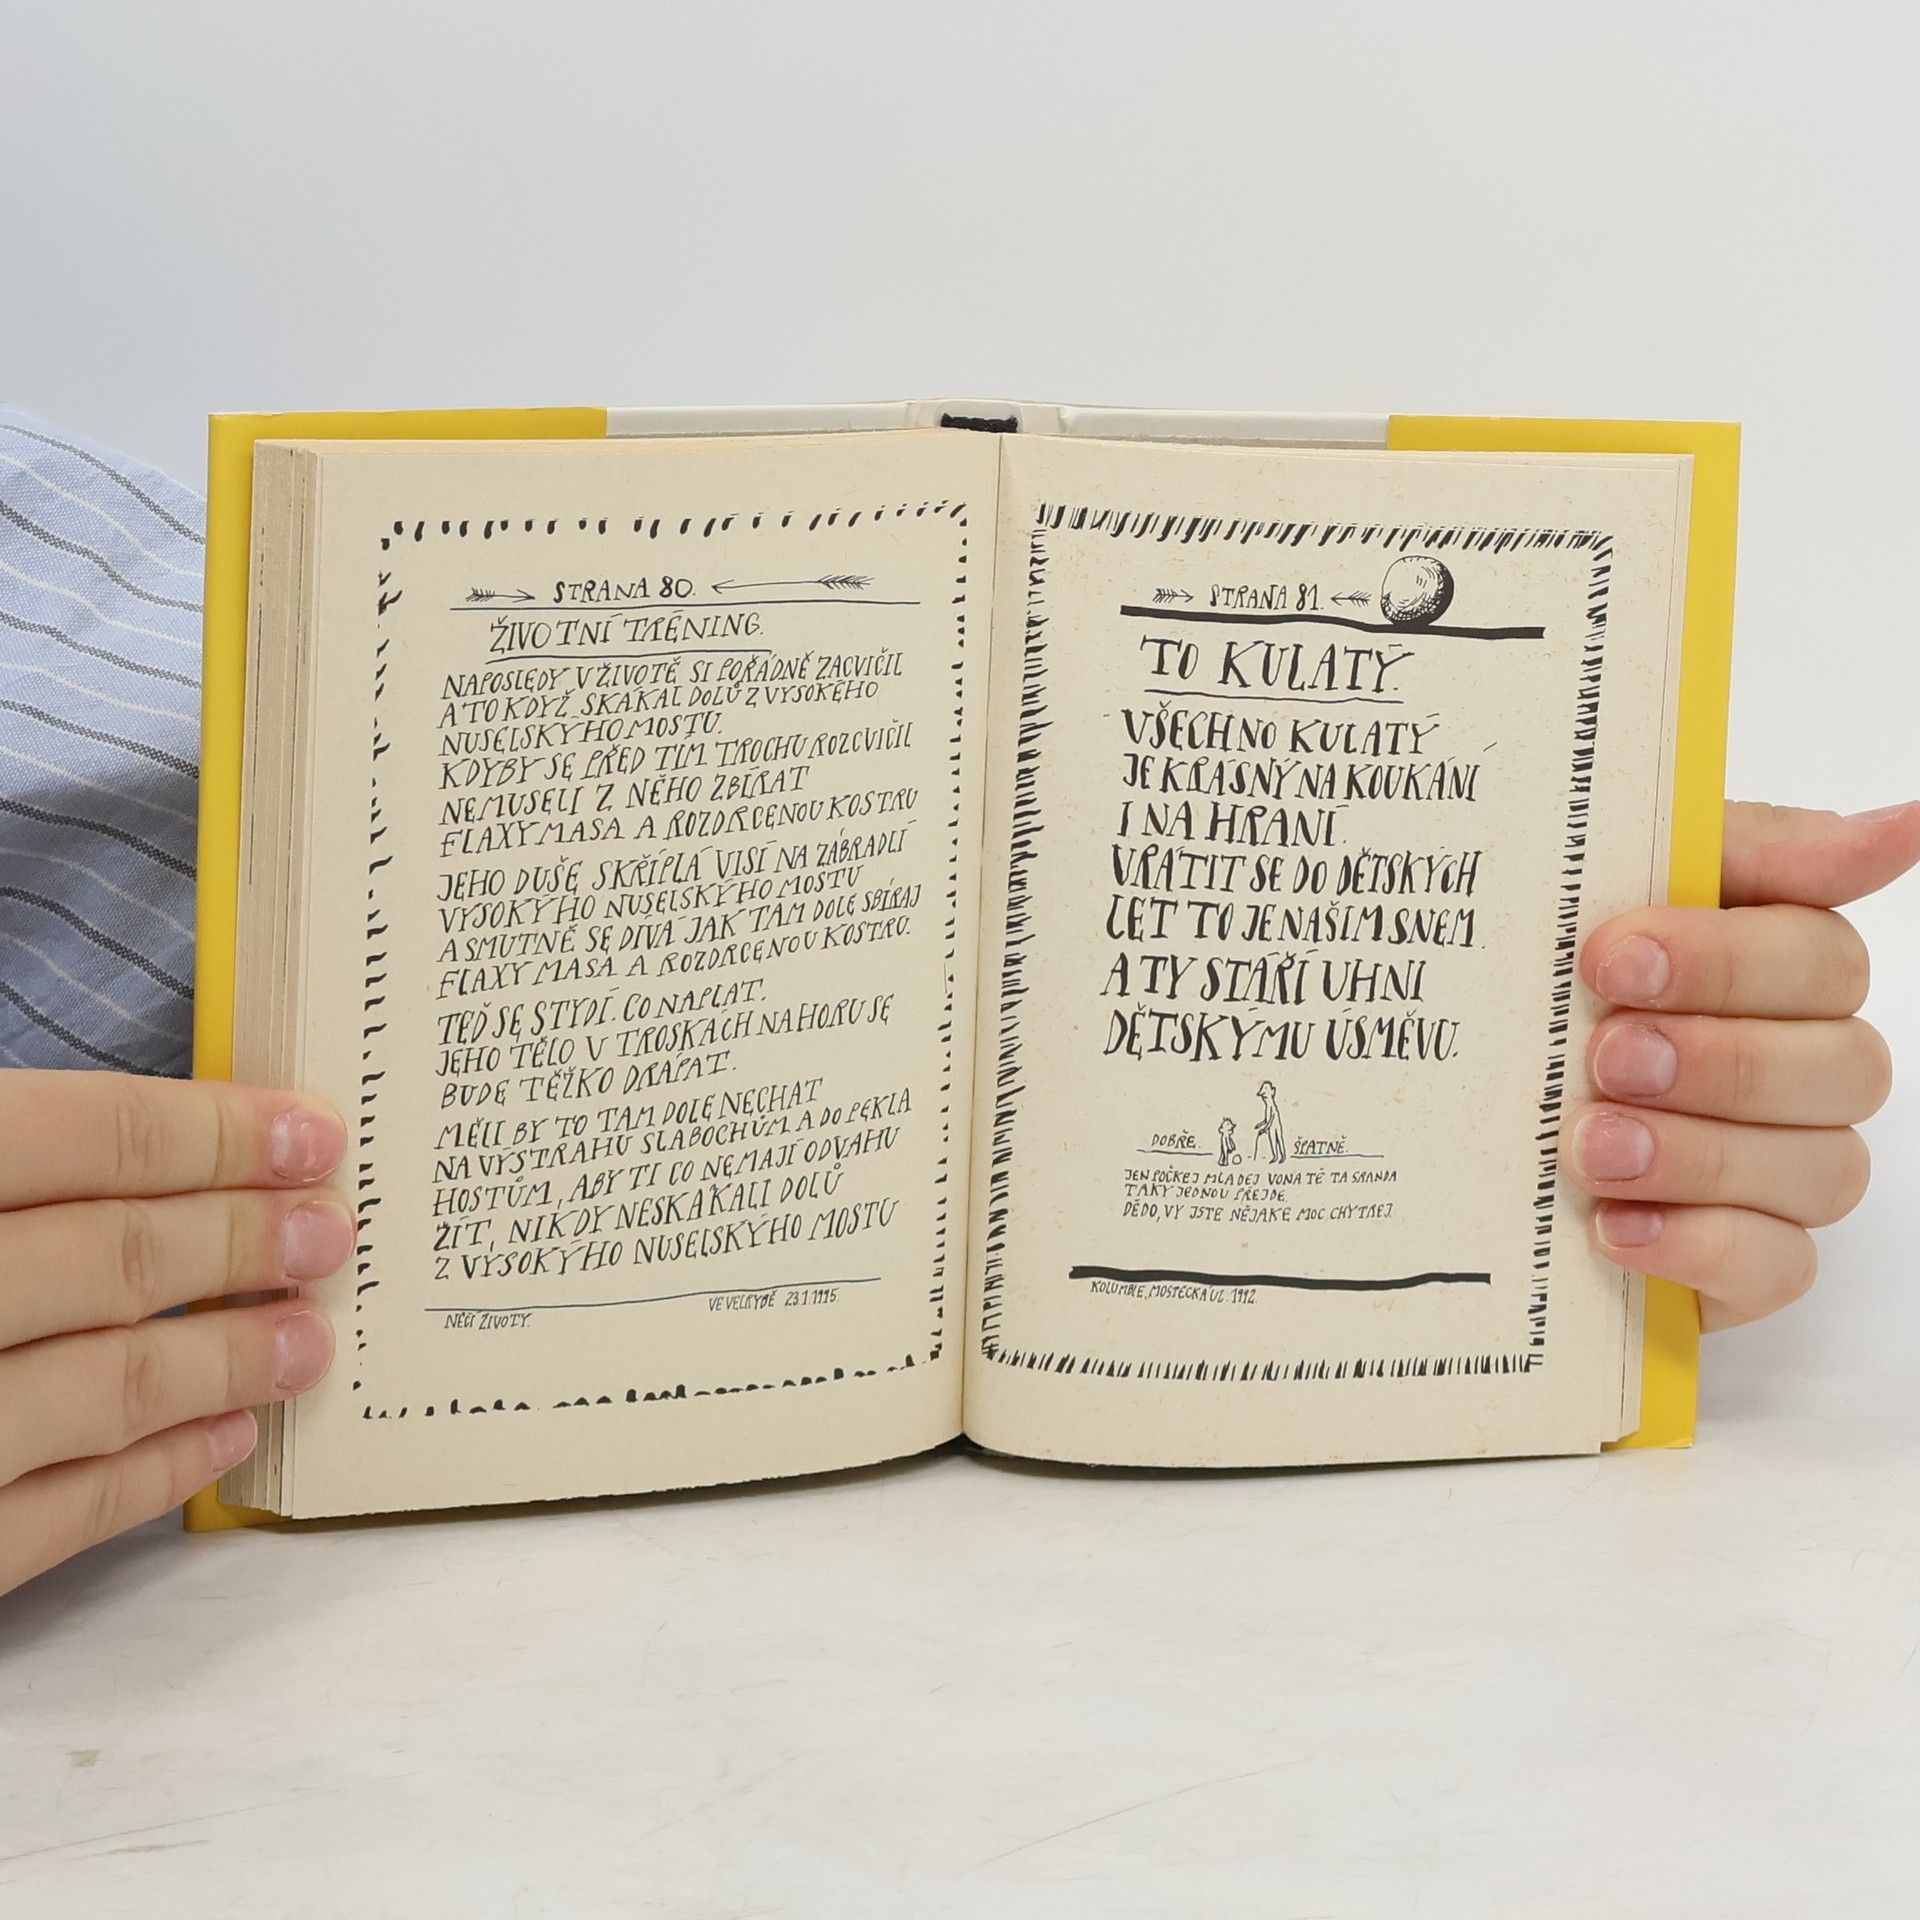 STRANA 80.
ŽIVOTNÍ TRÉNING.
NAPOSLEDY V ŽIVOTĚ SI POŘÁDNĚ ZACVIČIL
A TO KDYŽ SKÁKAL DOLŮ Z VYSOKÉHO
NUSELSKÝHO MOSTU.
KDYBY SE PŘED TÍM TROCHU ROZCVIČIL
NEMUSELI Z NĚHO ZBÍRAT
FLAXY MASA A ROZDRCENOU KOSTRU
JEHO DUŠE SKŘÍPLÁ VISÍ NA ZÁBRADLÍ
VYSOKÝHO NUSELSKÝHO MOSTU
A SMUTNĚ SE DÍVÁ JAK TAM DOLE SBÍRAJ
FLAXY MASA A ROZDRCENOU KOSTRU.
TEĎ SE STYDÍ. CO NAPLAT.
JEHO TĚLO V TROSKÁCH NAHORU SE
BUDE TĚŽKO DRÁPAT.
MĚLI BY TO TAM DOLE NECHAT
NA VÝSTRAHU SLABOCHŮM A DO PEKLA
HOSTŮM, ABY TI CO NEMAJÍ ODVAHU
ŽÍT, NIKDY NESKÁKALI DOLŮ
Z VYSOKÝHO NUSELSKÝHO MOSTU
VE VELRYBĚ 23.1.1995.
NĚČÍ ŽIVOTY.
STRANA 81.
TO KULATÝ.
VŠECHNO KULATÝ
JE KRÁSNÝ NA KOUKÁNÍ
I NA HRANÍ.
VRÁTIT SE DO DĚTSKÝCH
LET TO JE NAŠIM SNEM.
A TY STÁŘÍ UHNI
DĚTSKÝMU ÚSMĚVU.
DOBŘE. ŠPATNĚ.
JEN POČKEJ MLADEJ VONA TĚ TA SRANDA
TAKY JEDNOU PŘEJDE.
DĚDO, VY JSTE NĚJAKE MOC CHYTREJ.
KOLUMBIE, MOSTECKÁ UL. 1992.